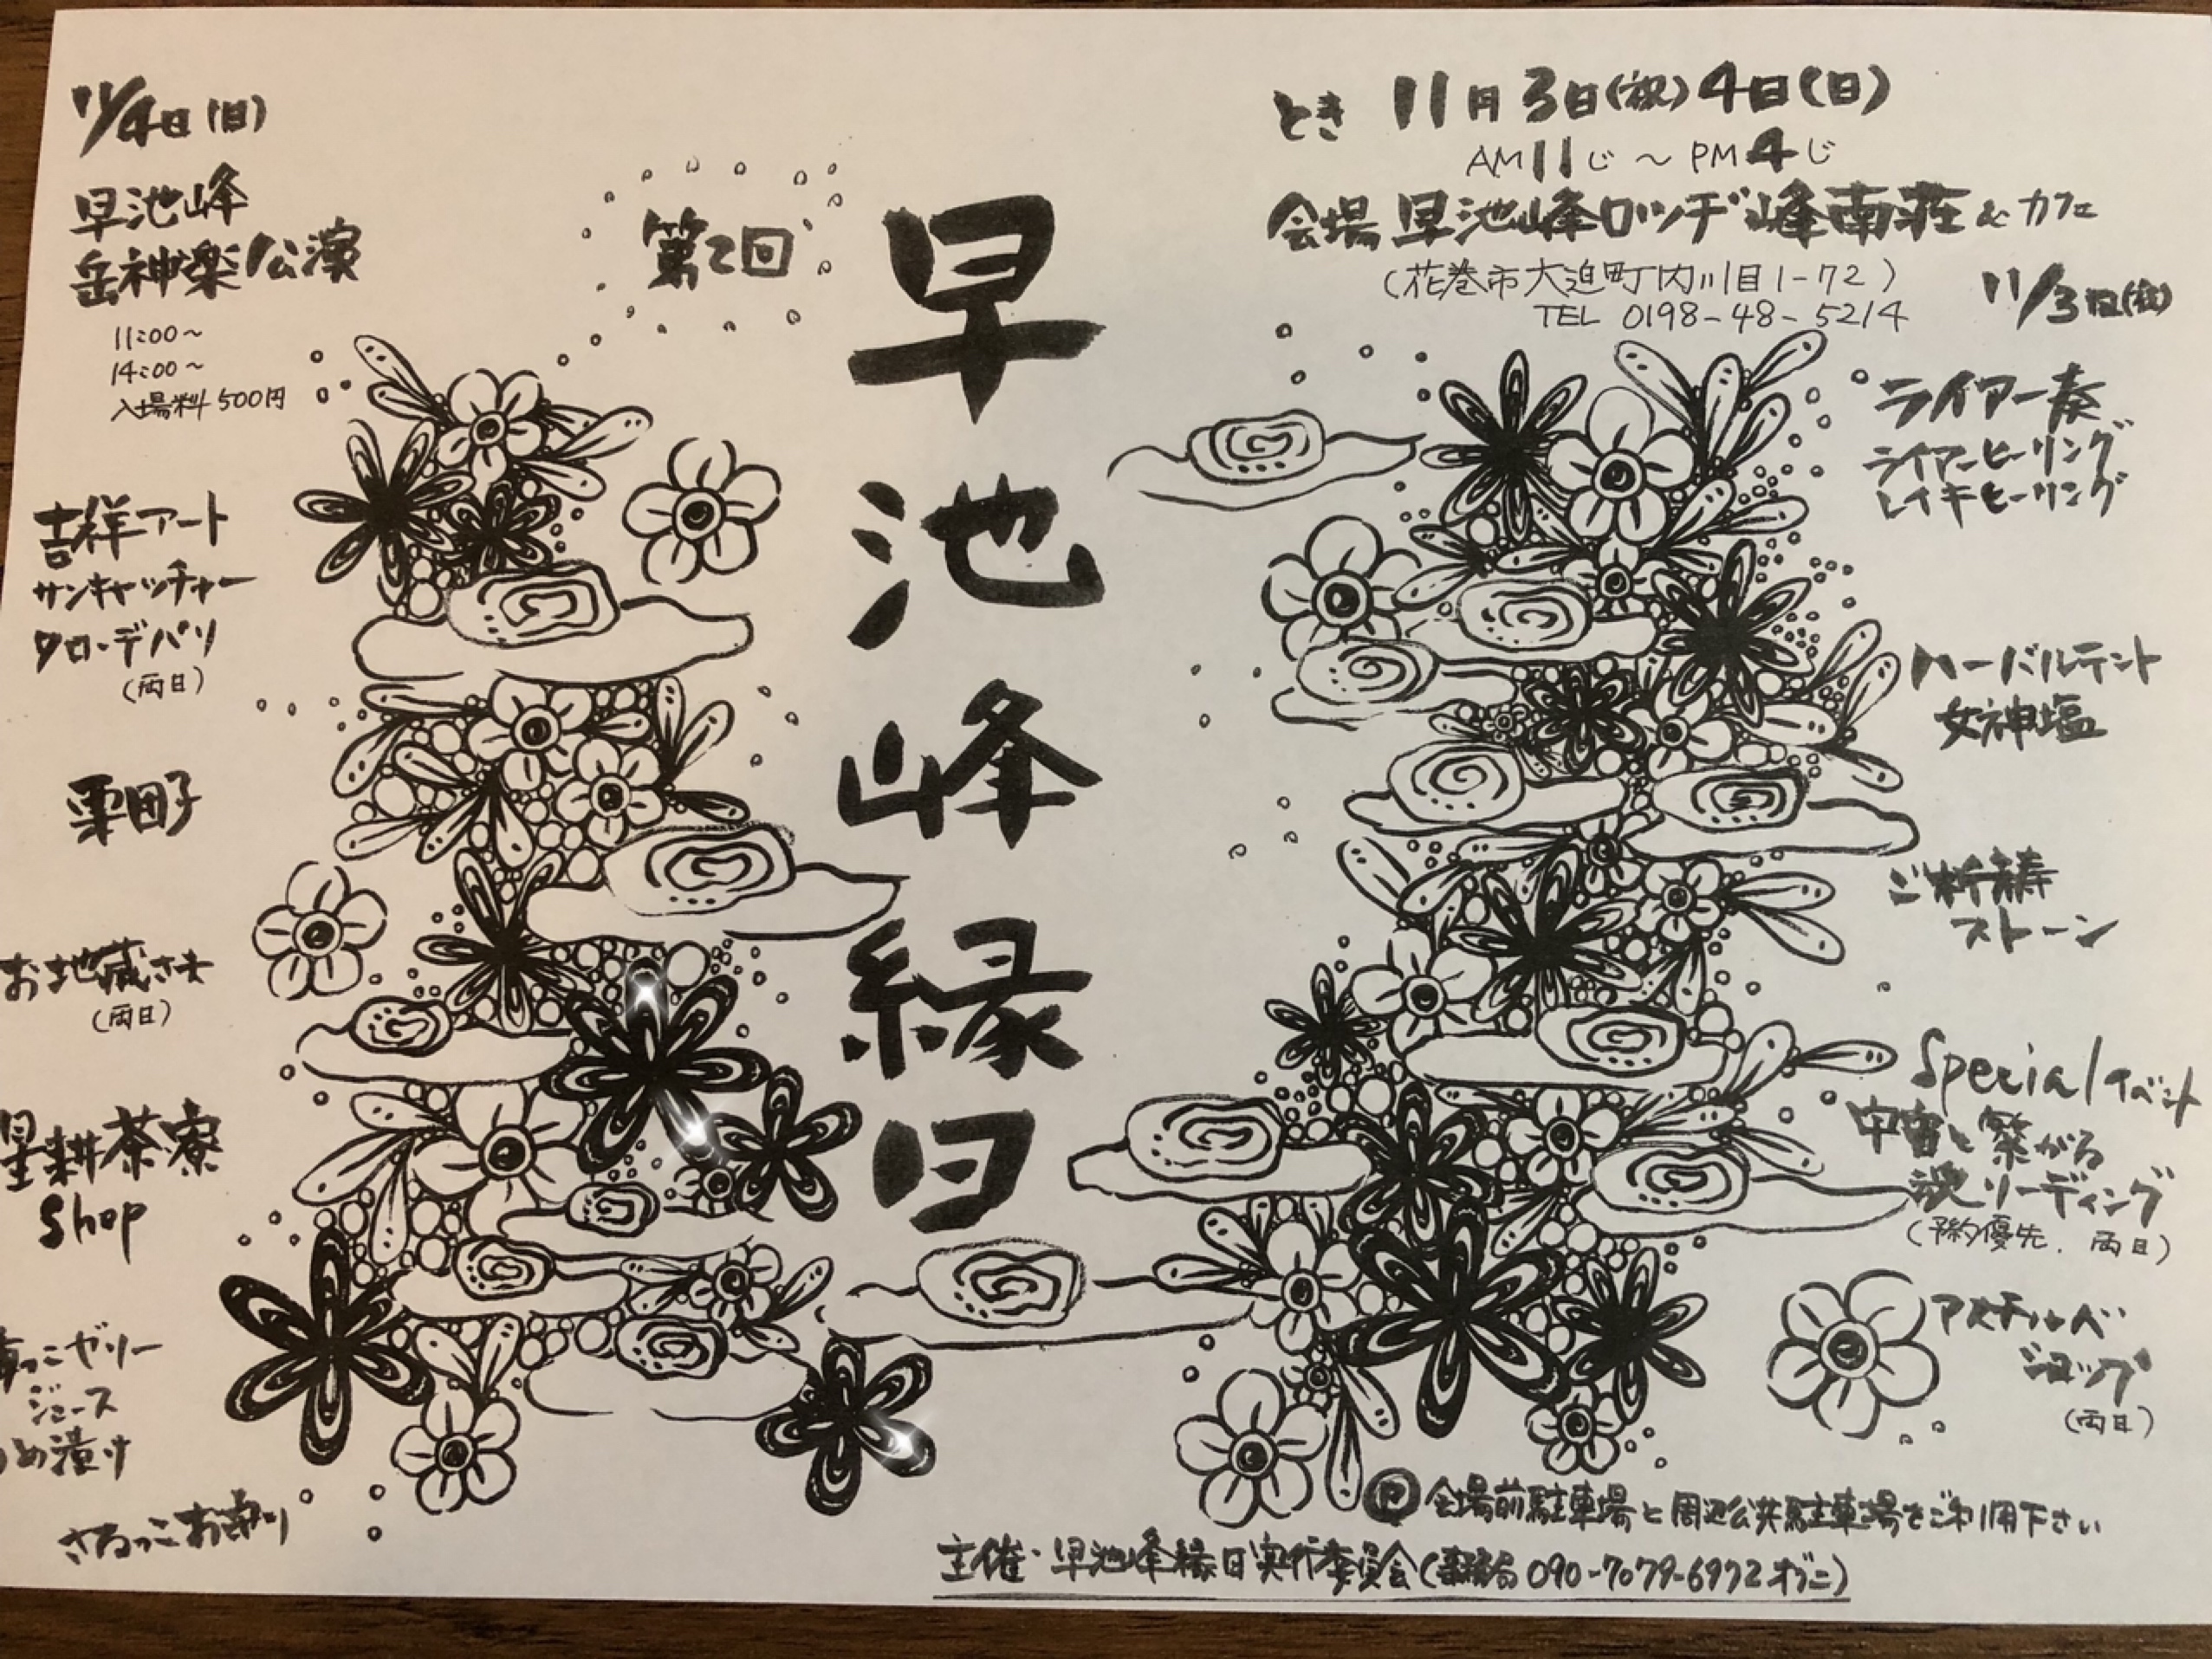 第2回
早池峰縁日
とき 11月3日(祝)4日(日)
AM11じ～PM4じ
会場 早池峰ロッヂ峰南荘&カフェ
(花巻市大迫町内川目1-72)
TEL 0198-48-5214
11/3日(祝)
ライアー奏
ライアーヒーリング
レイキヒーリング
ハーバルテント
女神塩
ご祈祷
ストーン
Specialイベント
宇宙と繋がる
リーディング
(予約優先、両日)
アスチルベ
ショップ
(両日)
11/4日(日)
早池峰
岳神楽公演
11:00～
14:00～
入場料500円
吉祥アート
サンキャッチャー
クロ・デパリ
(両日)
栗団子
お地蔵さま
(両日)
星耕茶寮
Shop
っこゼリー
ジュース
め漬け
さるっこお守り
Ⓟ会場前駐車場と周辺公共駐車場をご利用下さい
主催・早池峰縁日実行委員会(事務局090-7079-6972オグニ)